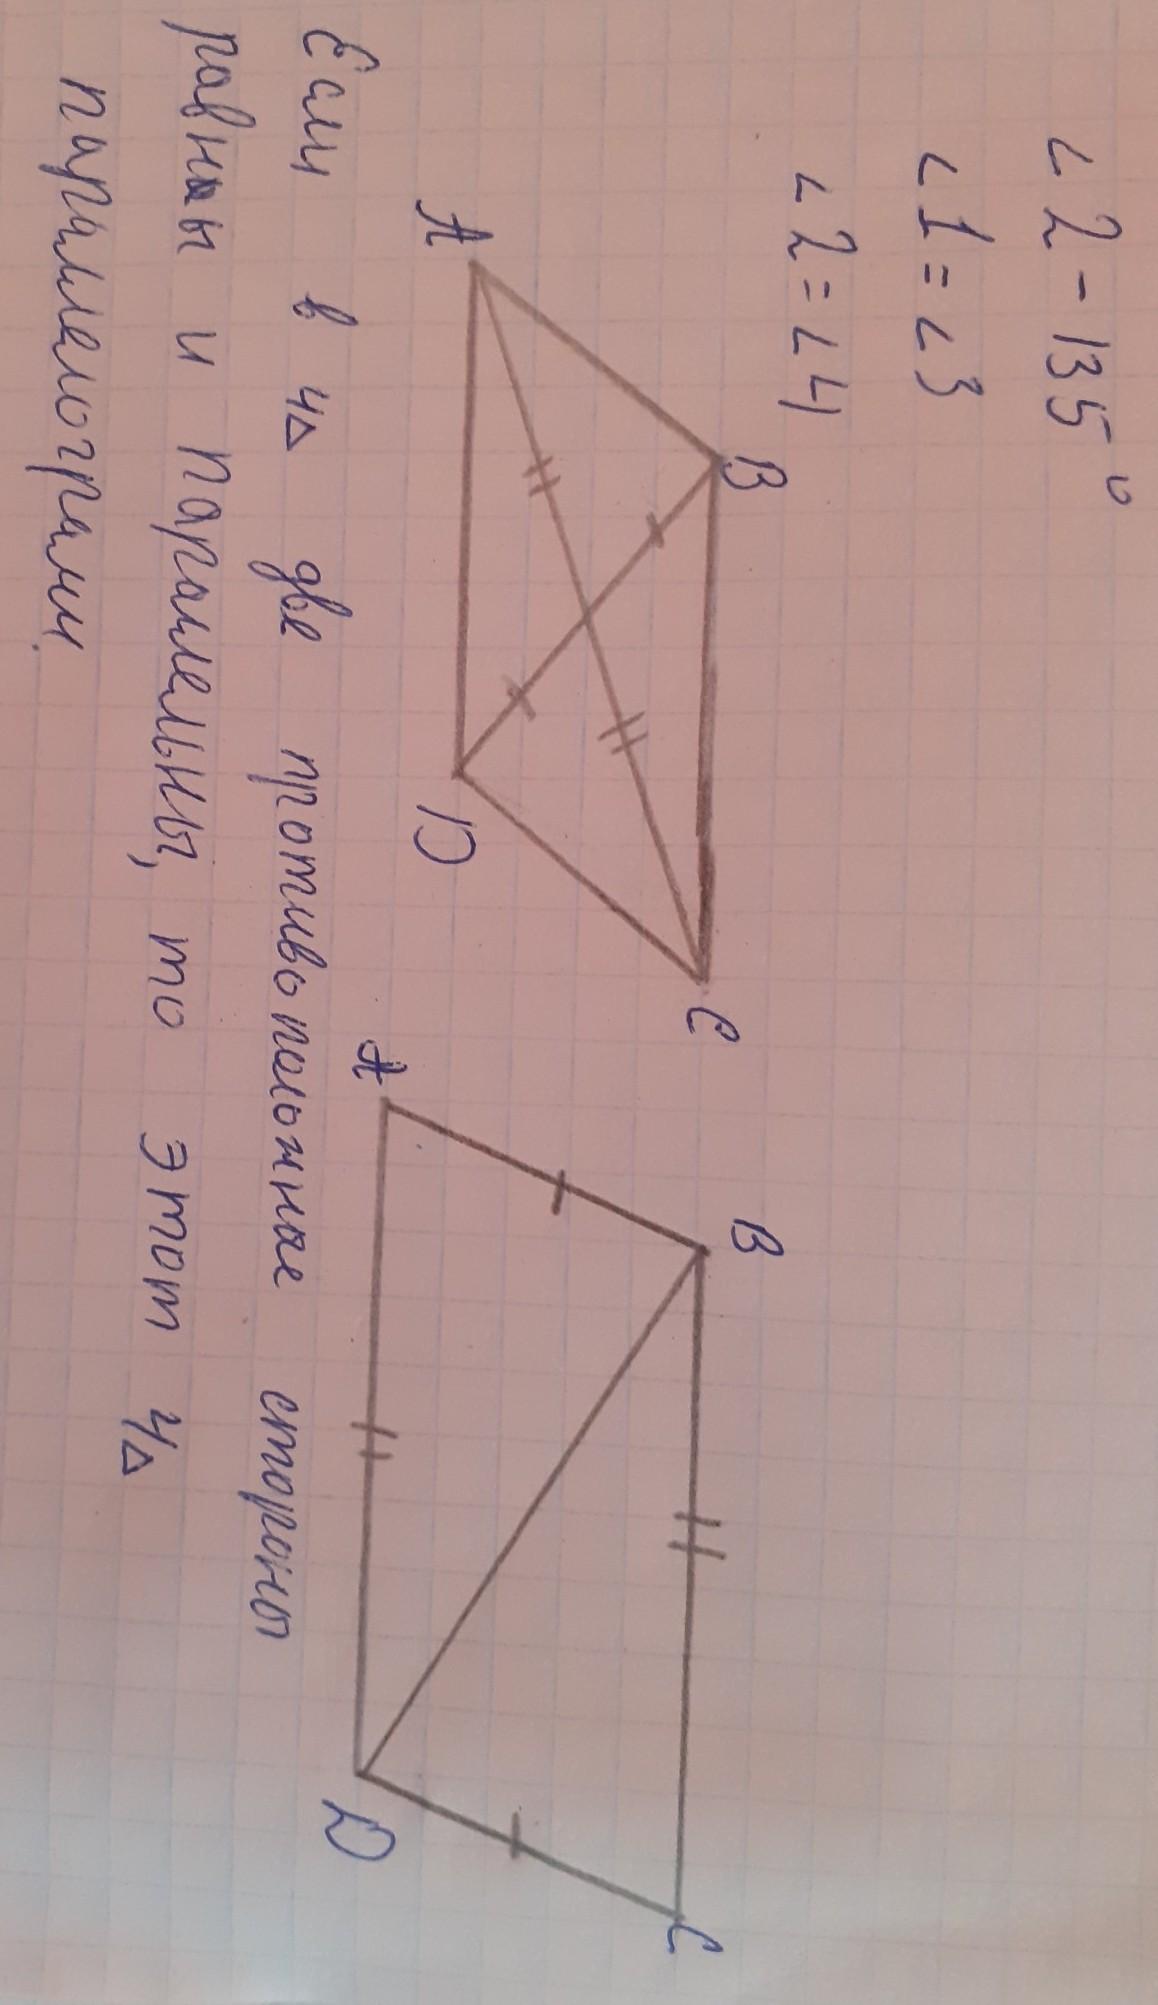 ∠2 - 135°
∠1 = ∠3
∠2 = ∠4
A B C D
A B C D
Если в 4△ две противоположные стороны
равны и параллельны, то этот 4△
параллелограмм.